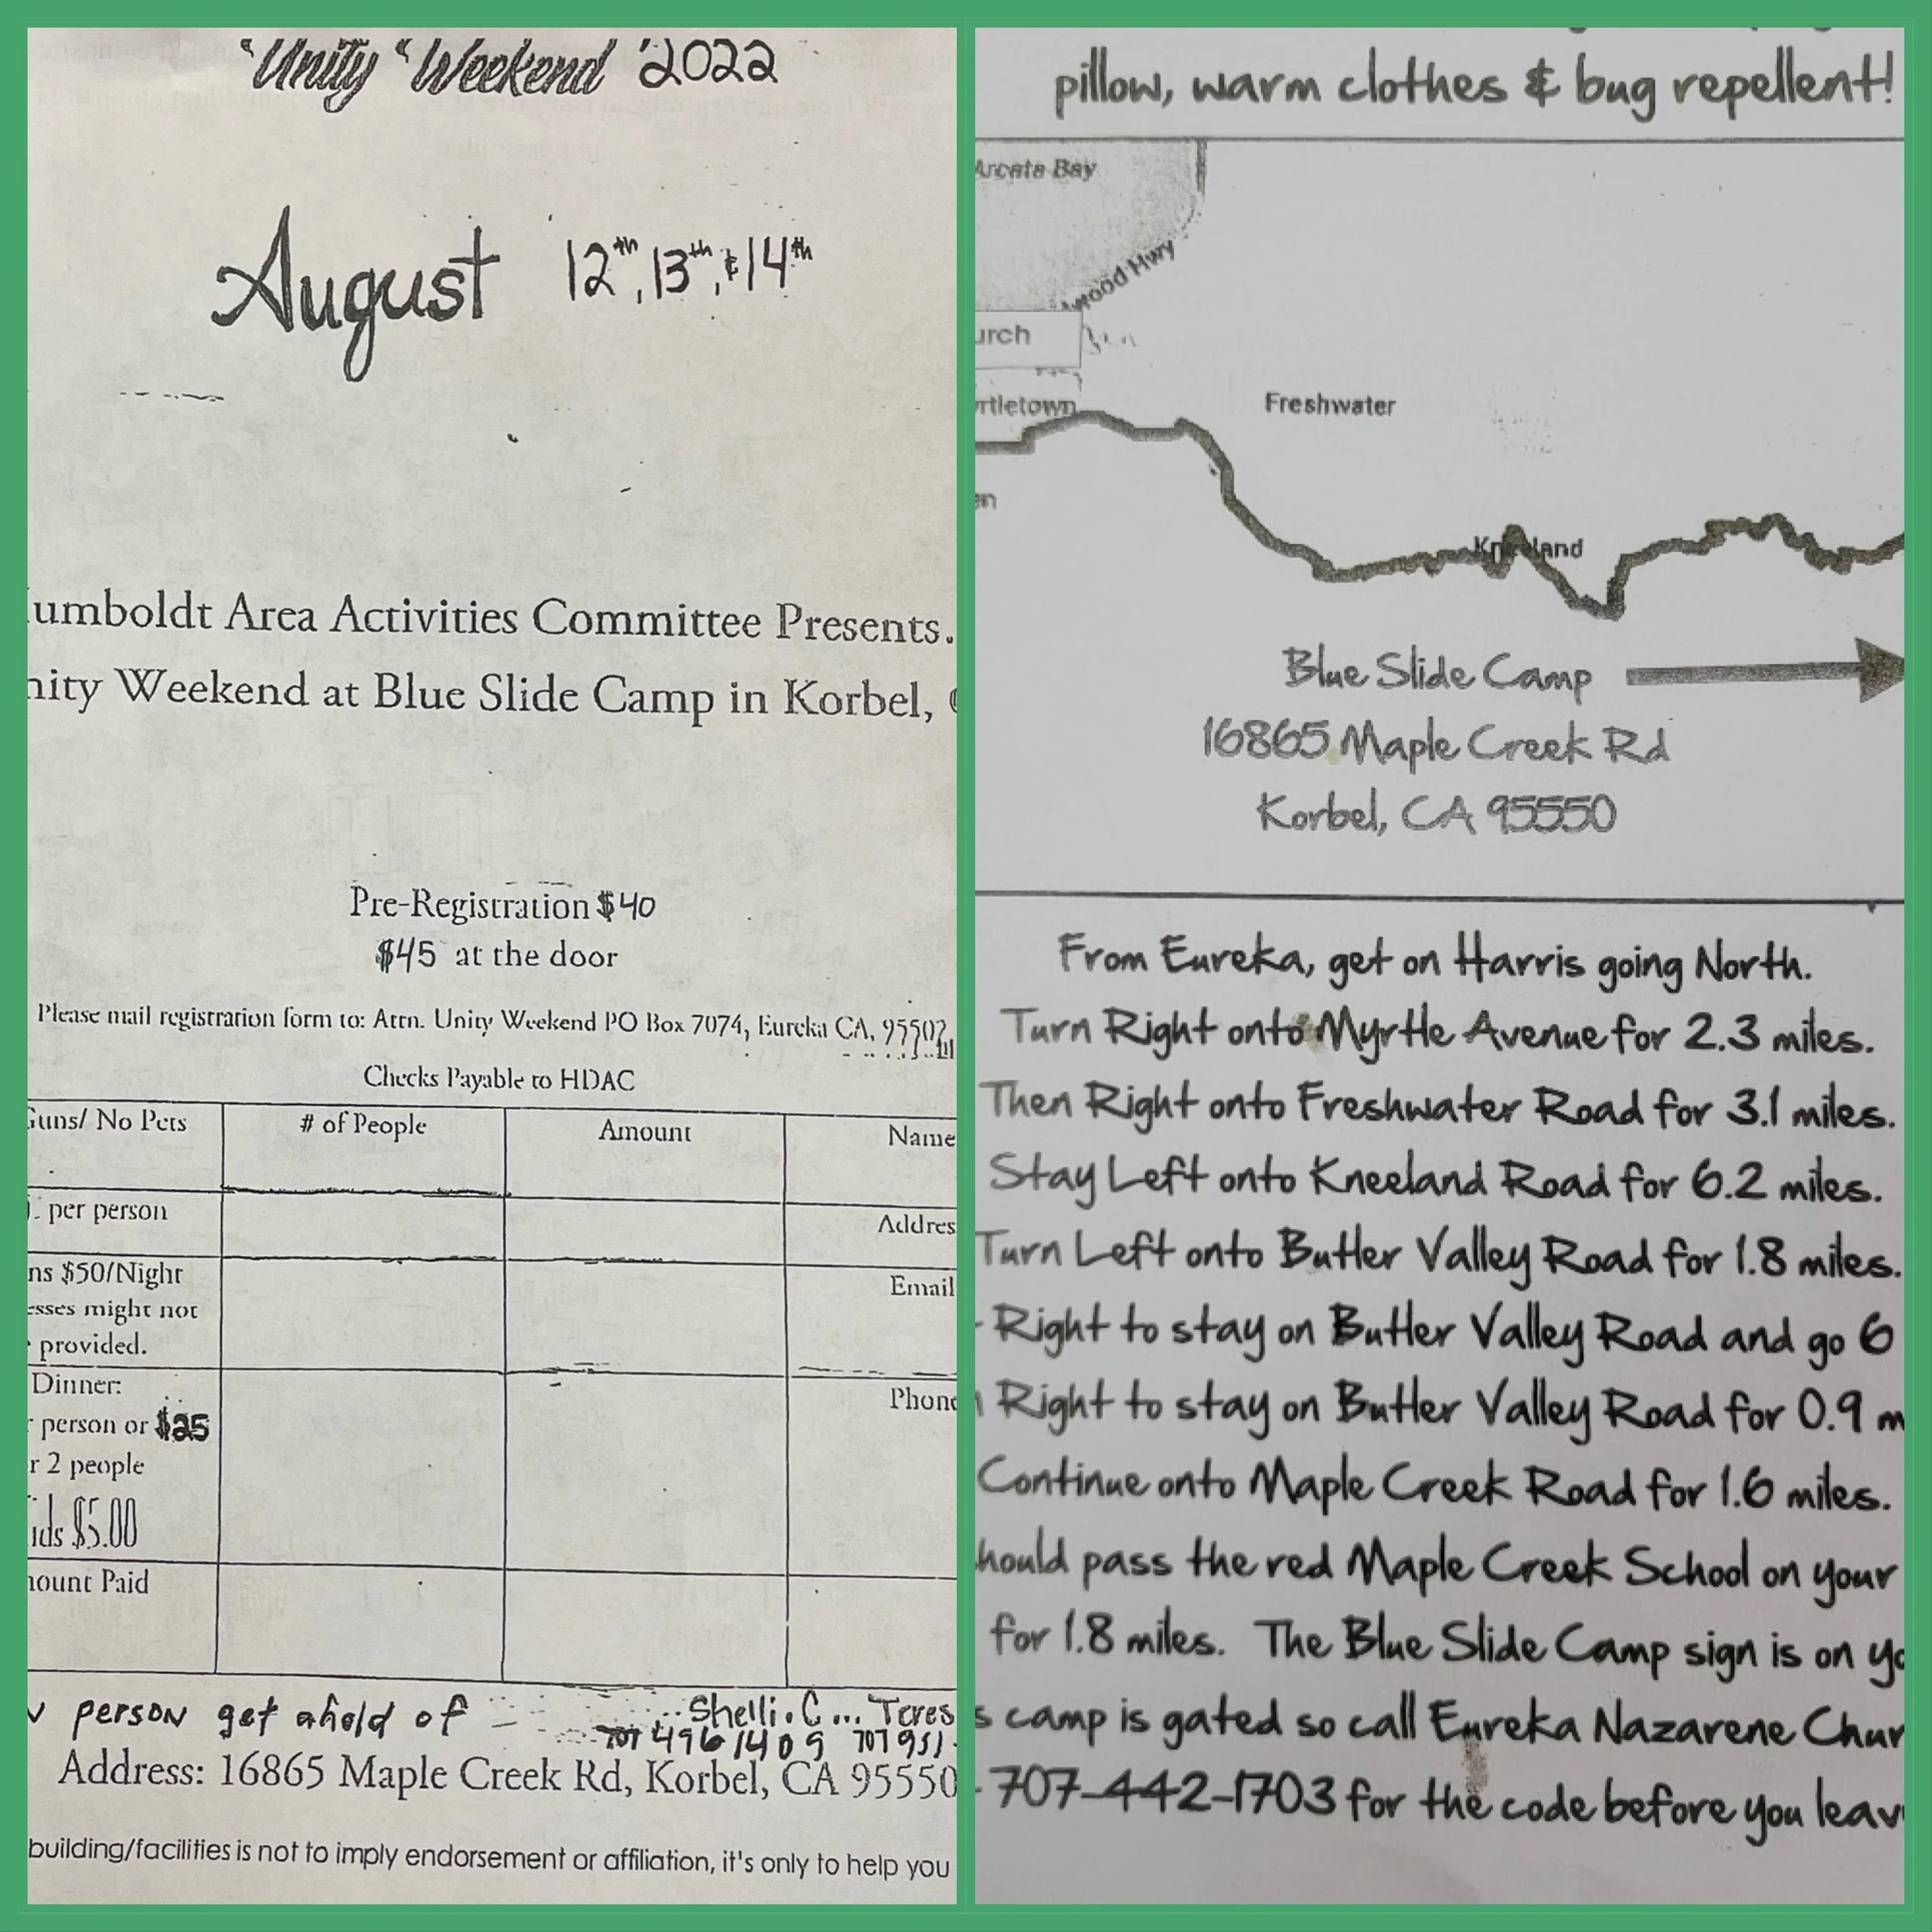 "Unity" Weekend '2022
August 12th, 13th, & 14th
umboldt Area Activities Committee Presents.
nity Weekend at Blue Slide Camp in Korbel,
Pre-Registration $40
$45 at the door
Please mail registration form to: Attn. Unity Weekend PO Box 7074, Eureka CA, 95502
Checks Payable to HDAC
Guns/ No Pets
# of People
Amount
Name
per person
Addres
ns $50/Night
esses might not
provided.
Email
Dinner:
person or $25
r 2 people
ids $5.00
Phone
ount Paid
person get ahold of - Shelli.C... Teres
707 496 1409 707 951
Address: 16865 Maple Creek Rd, Korbel, CA 95550
building/facilities is not to imply endorsement or affiliation, it's only to help you
pillow, warm clothes & bug repellent!
Arcata Bay
wood Hwy
urch
rtletown
Freshwater
en
Kneeland
Blue Slide Camp
16865 Maple Creek Rd
Korbel, CA 95550
From Eureka, get on Harris going North.
Turn Right onto Myrtle Avenue for 2.3 miles.
Then Right onto Freshwater Road for 3.1 miles.
Stay Left onto Kneeland Road for 6.2 miles.
Turn Left onto Butler Valley Road for 1.8 miles.
Right to stay on Butler Valley Road and go 6
Right to stay on Butler Valley Road for 0.9 m
Continue onto Maple Creek Road for 1.6 miles.
hould pass the red Maple Creek School on your
for 1.8 miles. The Blue Slide Camp sign is on yo
s camp is gated so call Eureka Nazarene Chur
707-442-1703 for the code before you leav